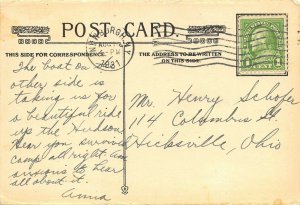 POST CARD.
THIS SIDE FOR CORRESPONDENCE.
THE ADDRESS TO BE WRITTEN
ON THIS SIDE.
1931
The boat on
other side is
taking us for
a beautiful ride
up the Hudson.
Hear you survived
camp all right. Am
anxious to hear
all about it.
Anna
Mr. Henry Schofer
114 Columbus St
Hicksville, Ohio
1